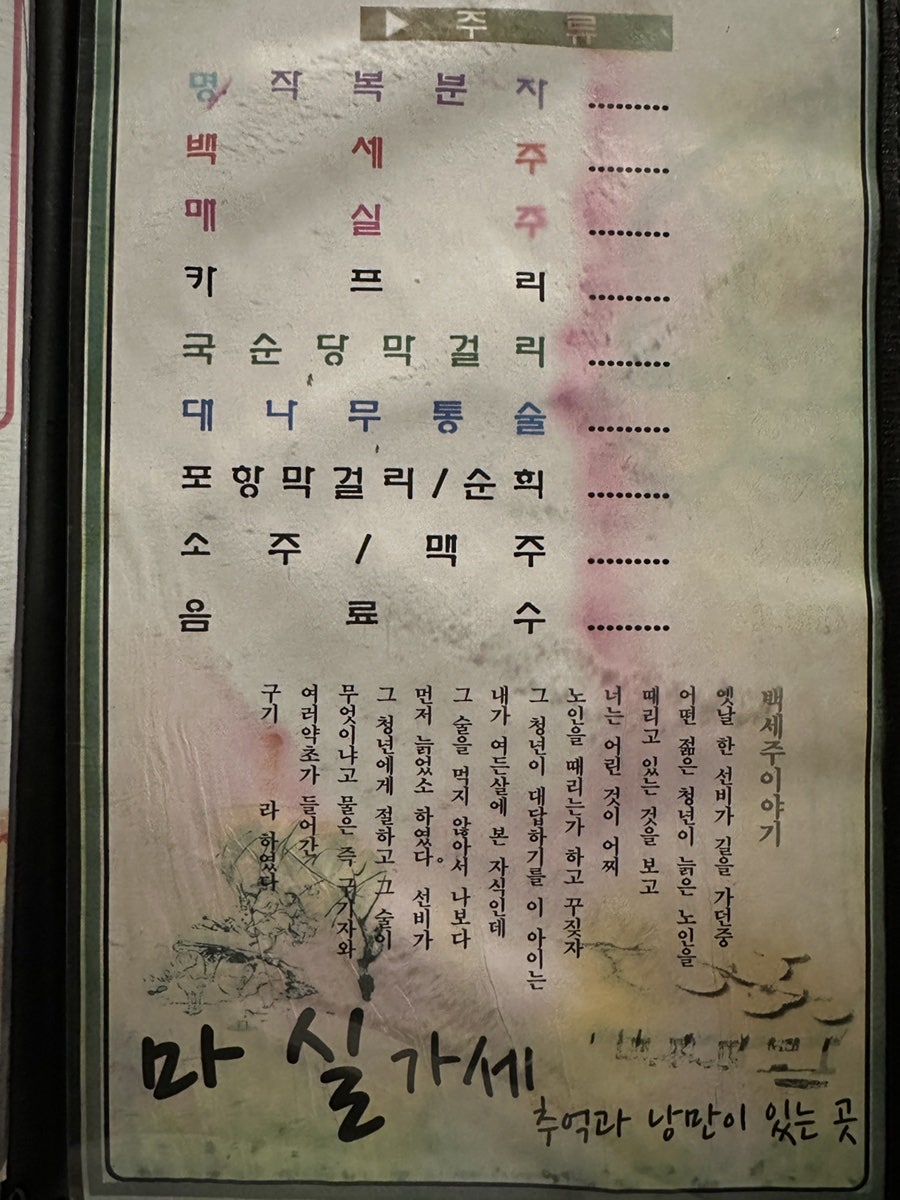 ▶ 주 류
명작복분자 .........
백세주 .........
매실주 .........
카프리 .........
국순당막걸리 .........
대나무통술 .........
포항막걸리/순희 .........
소주/맥주 .........
음료수 .........
백세주이야기
옛날 한 선비가 길을 가던중
어떤 젊은 청년이 늙은 노인을
때리고 있는 것을 보고
너는 어린 것이 어찌
노인을 때리는가 하고 꾸짖자
그 청년이 대답하기를 이 아이는
내가 여든살에 본 자식인데
그 술을 먹지 않아서 나보다
먼저 늙었소 하였다。 선비가
그 청년에게 절하고 그 술이
무엇이냐고 물은 즉 구기자와
여러약초가 들어간
구기 라 하였다
마실가세
추억과 낭만이 있는 곳